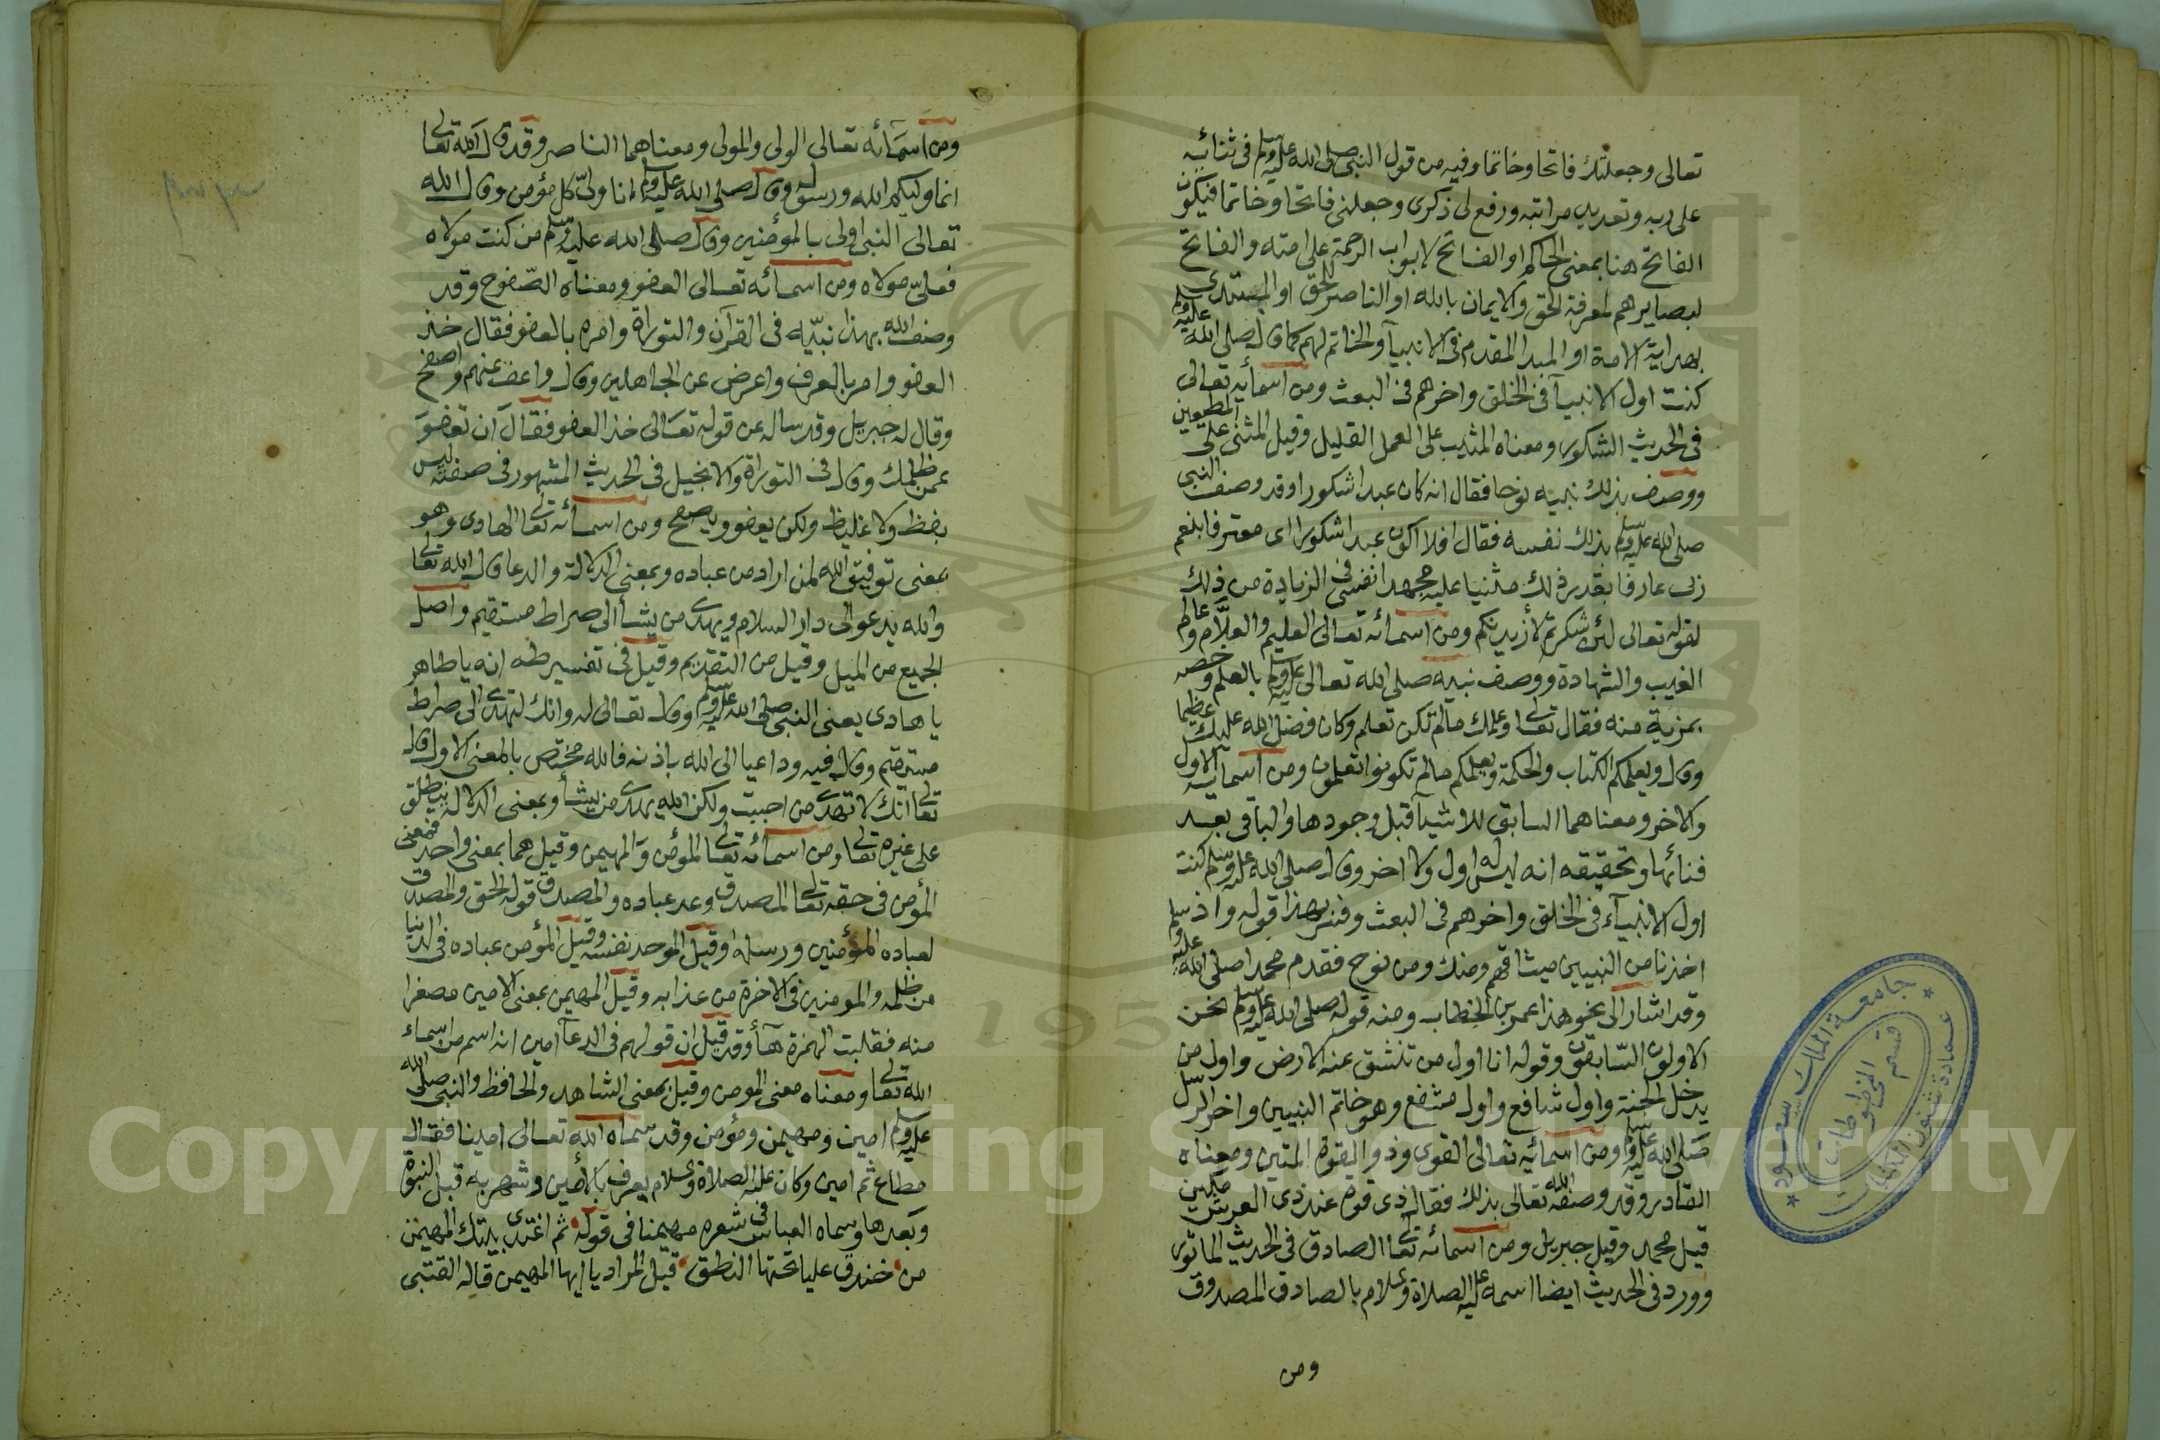 تعالى وجعلتك فاتحا وخاتما وفيه من قول النبى صلى الله عليه وسلم فى ثنائه
على ربه وتعديد مراتبه ورفع لى ذكرى وجعلنى فاتحا وخاتما فيكون
الفاتح هنا بمعنى الحاكم او الفاتح لابواب الرحمة على امته والفاتح
لبصايرهم لمعرفة الحق والايمان بالله او الناصر للحق او المبتدى
بهداية الامة او المبدا المقدم فى الانبيآ والخاتم لهم كما قال صلى الله عليه وسلم
كنت اول الانبيآ فى الخلق واخرهم فى البعث ومن اسمآيه تعالى
فى الحديث الشكور ومعناه المثيب على العمل القليل وقيل المثنى على المطيعين
ووصف بذلك نبيه نوحا فقال انه كان عبدا شكورا وقد وصف النبى
صلى الله عليه وسلم بذلك نفسه فقال افلا اكون عبدا شكورا اى معترفا بنعم
ربى عارفا بقدر ذلك مثنيا عليه مجهدا نفسى فى الزيادة من ذلك
لقوله تعالى لئن شكرتم لأزيدنكم ومن اسمائه تعالى العليم والعلّام وعالم
الغيب والشهادة ووصف نبيه صلى الله تعالى عليه وسلم بالعلم وخصه
بمزية منه فقال تعالى وعلمك مالم تكن تعلم وكان فضل الله عليك عظيما
وقال ويعلمكم الكتاب والحكمة ويعلمكم مالم تكونوا تعلمون ومن اسمايه الاول
والاخر ومعناهما السابق للاشيآ قبل وجودها والباقى بعد
فنائها وتحقيقه انه ليس له اول ولا اخر وقال صلى الله عليه وسلم كنت
اول الانبيآء فى الخلق واخرهم فى البعث وفسر بهذا قوله واذ
اخذنا من النبيين ميثاقهم ومنك ومن نوح فقدم محمدا صلى الله عليه وسلم
وقد اشار الى نحو هذا عمر بن الخطاب ومنه قوله صلى الله عليه وسلم نحن
الاولون السّابقون وقوله انا اول من تنشق عنه الارض واول من
يدخل الجنة واول شافع واول مشفع وهو خاتم النبيين واخر الرسل
صلى الله عليه وسلم ومن اسمائه تعالى القوى وذو القوة المتين ومعناه
القادر وقد وصفه الله تعالى بذلك فقال ذى قوة عند ذى العرش مكين
قيل محمد وقيل جبريل ومن اسمائه تعالى الصادق فى الحديث الماثور
وورد فى الحديث ايضا اسمه عليه الصلاة والسلام بالصادق المصدوق
ومن
ومن اسمآئه تعالى الولى والمولى ومعناهما الناصر وقد قال الله تعالى
انما وليكم الله ورسوله وقال صلى الله عليه وسلم انا ولىّ كل مؤمن وقال الله
تعالى النبى اولى بالمؤمنين وقال صلى الله عليه وسلم من كنت مولاه
فعلىّ مولاه ومن اسمائه تعالى العفو ومعناه الصّفوح وقد
وصف الله بهذا نبيّه فى القرآن والتوراة وامره بالعفو فقال خذ
العفو وامر بالعرف واعرض عن الجاهلين وقال واعف عنهم واصفح
وقال له جبريل وقد ساله عن قوله تعالى خذ العفو فقال ان تعفوَ
عمن ظلمك وقال فى التوراة والانجيل فى الحديث المشهور فى صفته ليس
بفظ ولا غليظ ولكن يعفو ويصفح ومن اسمائه تعالى الهادى وهو
بمعنى توفيق الله لمن اراد من عباده وبمعنى الدلالة والدعا قال الله تعالى
والله يدعو الى دار السلام ويهدى من يشأ الى صراط مستقيم واصل
الجميع من الميل وقيل من التقديم وقيل فى تفسير طه انه ياطاهر
ياهادى يعنى النبى صلى الله عليه وسلم وقال تعالى له وانك لتهدى الى صراط
مستقيم وقال فيه وداعيا الى الله باذنه فالله مختص بالمعنى الاول قال
تعالى انك لا تهدى من احببت ولكن الله يهدى من يشأ وبمعنى الدلالة ينطلق
على غيره تعالى ومن اسمائه تعالى المؤمن والمهيمن وقيل هما بمعنى واحد فمعنى
المؤمن فى حقه تعالى المصدق وعد عباده والمصدق قوله الحق والمصدق
لعباده المؤمنين ورسله وقيل الموحد نفسه وقيل المؤمن عباده فى الدنيا
من ظلمه والمومنين فى الاخرة من عذابه وقيل المهيمن بمعنى الامين مصغرا
منه فقلبت الهمزة هآ وقد قيل ان قولهم فى الدعآ امين انه اسم من اسماء
الله تعالى ومعناه معنى المومن وقيل بمعنى الشاهد والحافظ والنبى صلى الله
عليه وسلم امين ومهيمن ومؤمن وقد سماه الله تعالى امينا فقال
مطاع ثم امين وكان عليه الصلاة والسلام يعرف بالأمين وشهر به قبل النبوة
وبعدها وسماه العباس فى شعره مهيمنا فى قوله ثم اغتدى بيتك المهيمن
من خندف عليا تحتها النطق قيل المراد يا ايها المهيمن قاله القتبى
جامعة الملك سعود
عمادة شئون المكتبات
قسم المخطوطات
Copyright © King Saud University